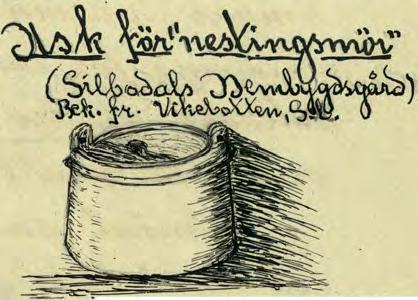 Ask för "nestingsmör"
(Silbodals Hembygdsgård)
Bek. fr. Vikebotten, Silb.